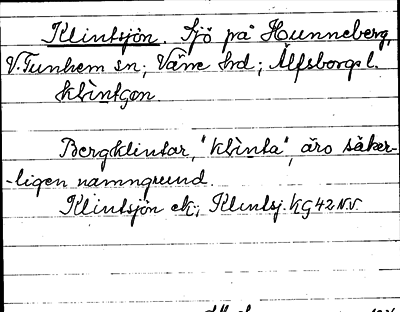 Klintsjön. Sjö på Hunneberg,
V. Tunhem sn; Väne hd; Älfsborgs l.
klìntgọn.
Bergklintar, "klìnta", äro säker-
-ligen namngrund.
Klintsjön ek; Klintsj. KG 42 N.V.